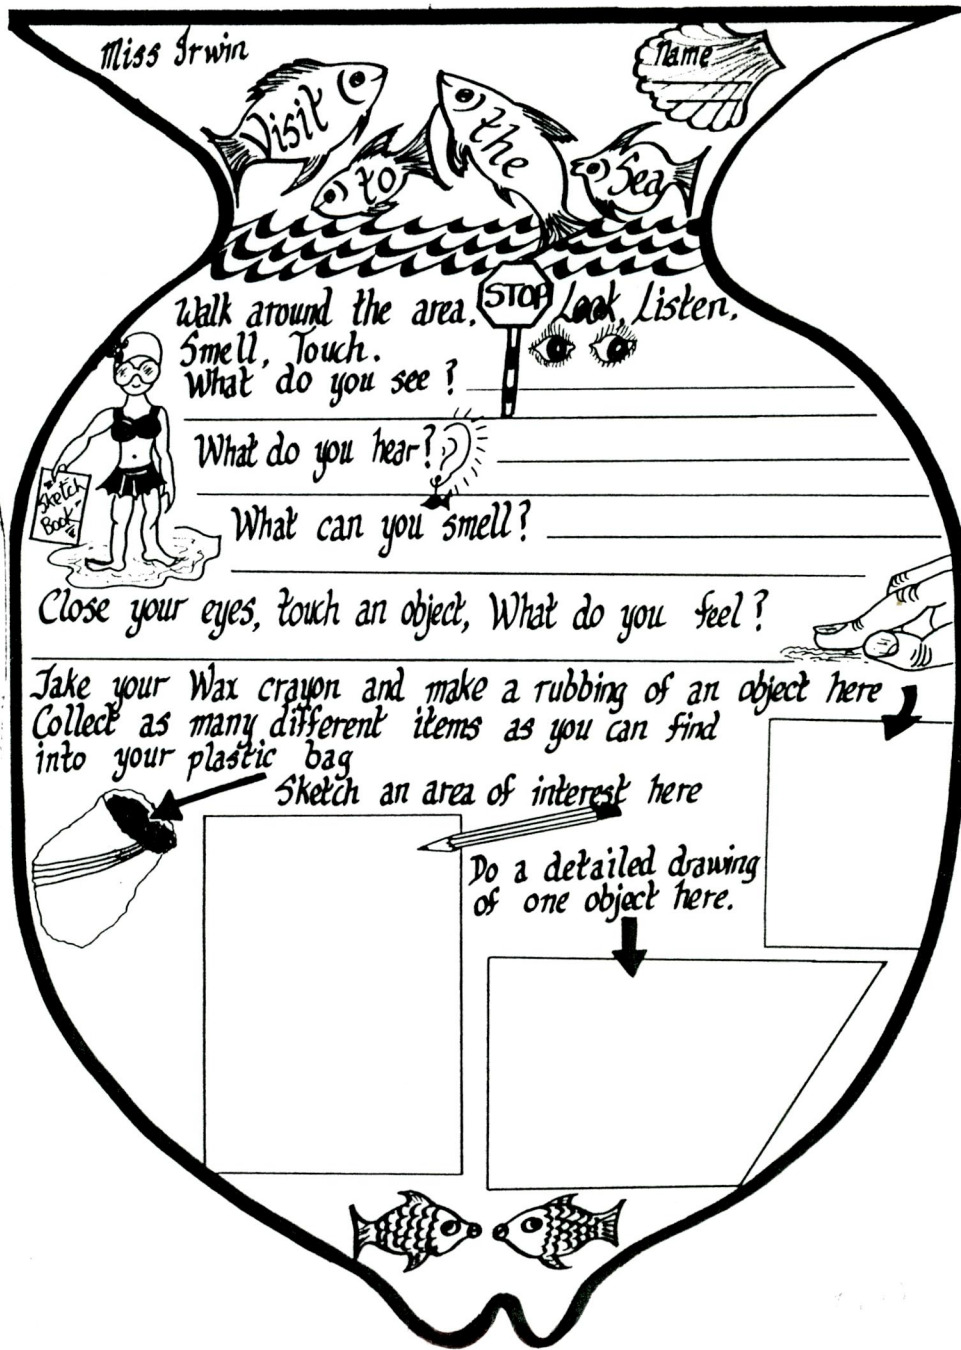 Miss Irwin
Name
Visit to the Sea
Walk around the area. STOP Look, Listen,
Smell, Touch.
What do you see?
What do you hear?
Sketch
Book
What can you smell?
Close your eyes, touch an object, What do you feel?
Take your Wax crayon and make a rubbing of an object here
Collect as many different items as you can find
into your plastic bag
Sketch an area of interest here
Do a detailed drawing
of one object here.